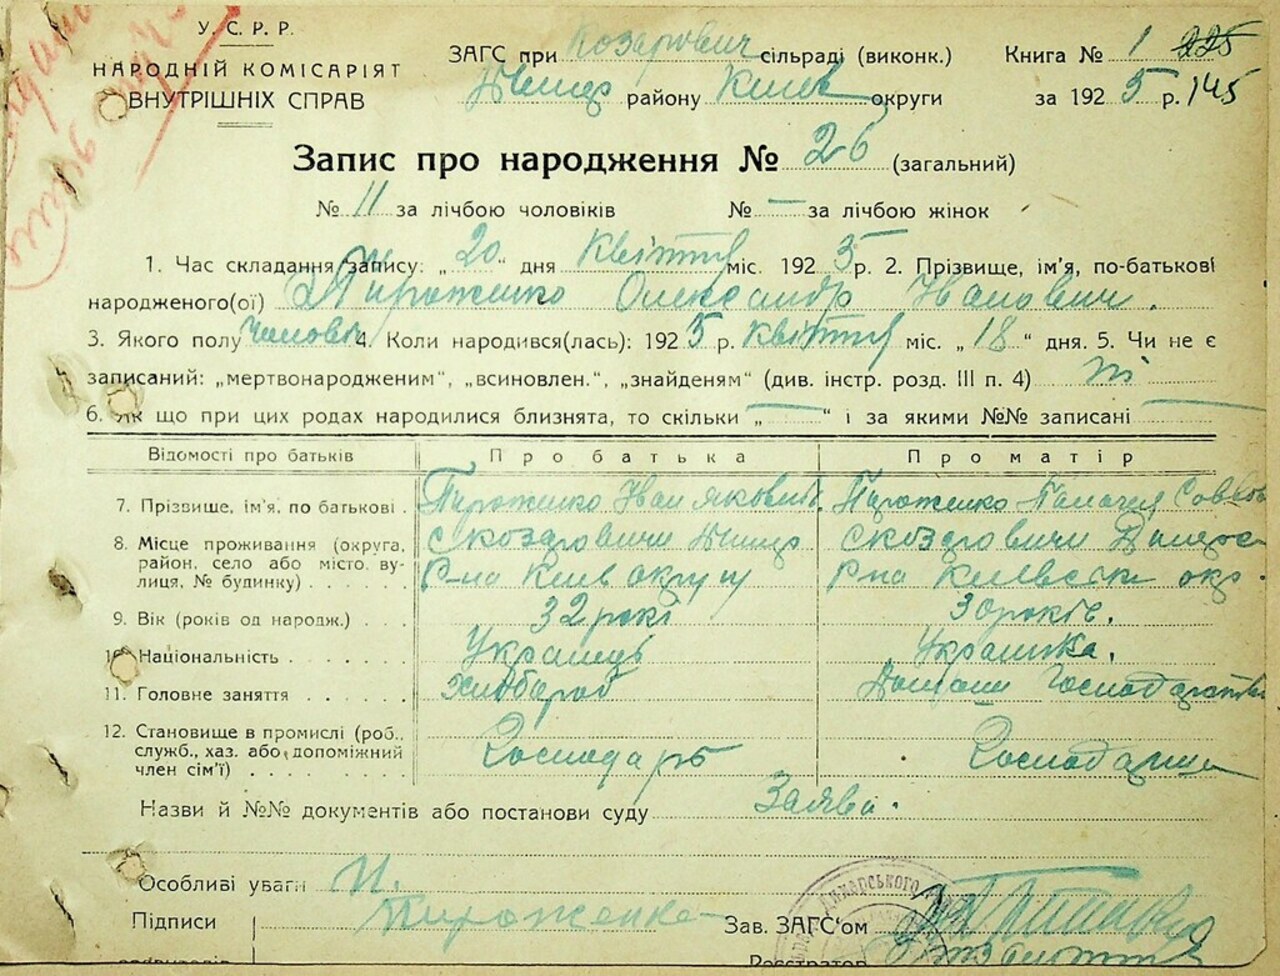 У.С.Р.Р.
НАРОДНІЙ КОМІСАРІЯТ
ВНУТРІШНІХ СПРАВ
ЗАГС при Козарович сільраді (виконк.)
району Київ округи
Книга № 1 225
за 1925 р. 145
Запис про народження № 26 (загальний)
№ 11 за лічбою чоловіків № — за лічбою жінок
1. Час складання запису: „20“ дня Квітня міс. 1925 р. 2. Прізвище, ім'я, по-батькові
народженого(ої) Пироженко Олександр Іванович.
3. Якого полу Чоловіч 4. Коли народився(лась): 1925 р. Квітня міс. „18“ дня. 5. Чи не є
записаний: „мертвонародженим“, „всиновлен.“, „знайденям“ (див. інстр. розд. III п. 4) ні
6. Як що при цих родах народилися близнята, то скільки „—“ і за якими №№ записані —
Відомості про батьків Про батька Про матір
7. Прізвище, ім'я, по батькові . Пироженко Іван Якович. Пироженко Савов
8. Місце проживання (округа, район, село або місто, вулиця, № будинку) . . . .
С Козаровичи С Козаровичи
Р-на Київ округи Р-на Київськ окр.
9. Вік (років од народж.) . . 32 рокі 30 років.
10. Національність . . . . . . Українець Українка.
11. Головне заняття . . . . . Хлібороб Домашн господарство
12. Становище в промислі (роб., служб., хаз. або допоміжний член сім'ї) . . . . . . . .
Господарь Господарка
Назви й №№ документів або постанови суду Заява.
Особливі уваги
Підписи Пироженко Зав. ЗАГС'ом
Реєстратор